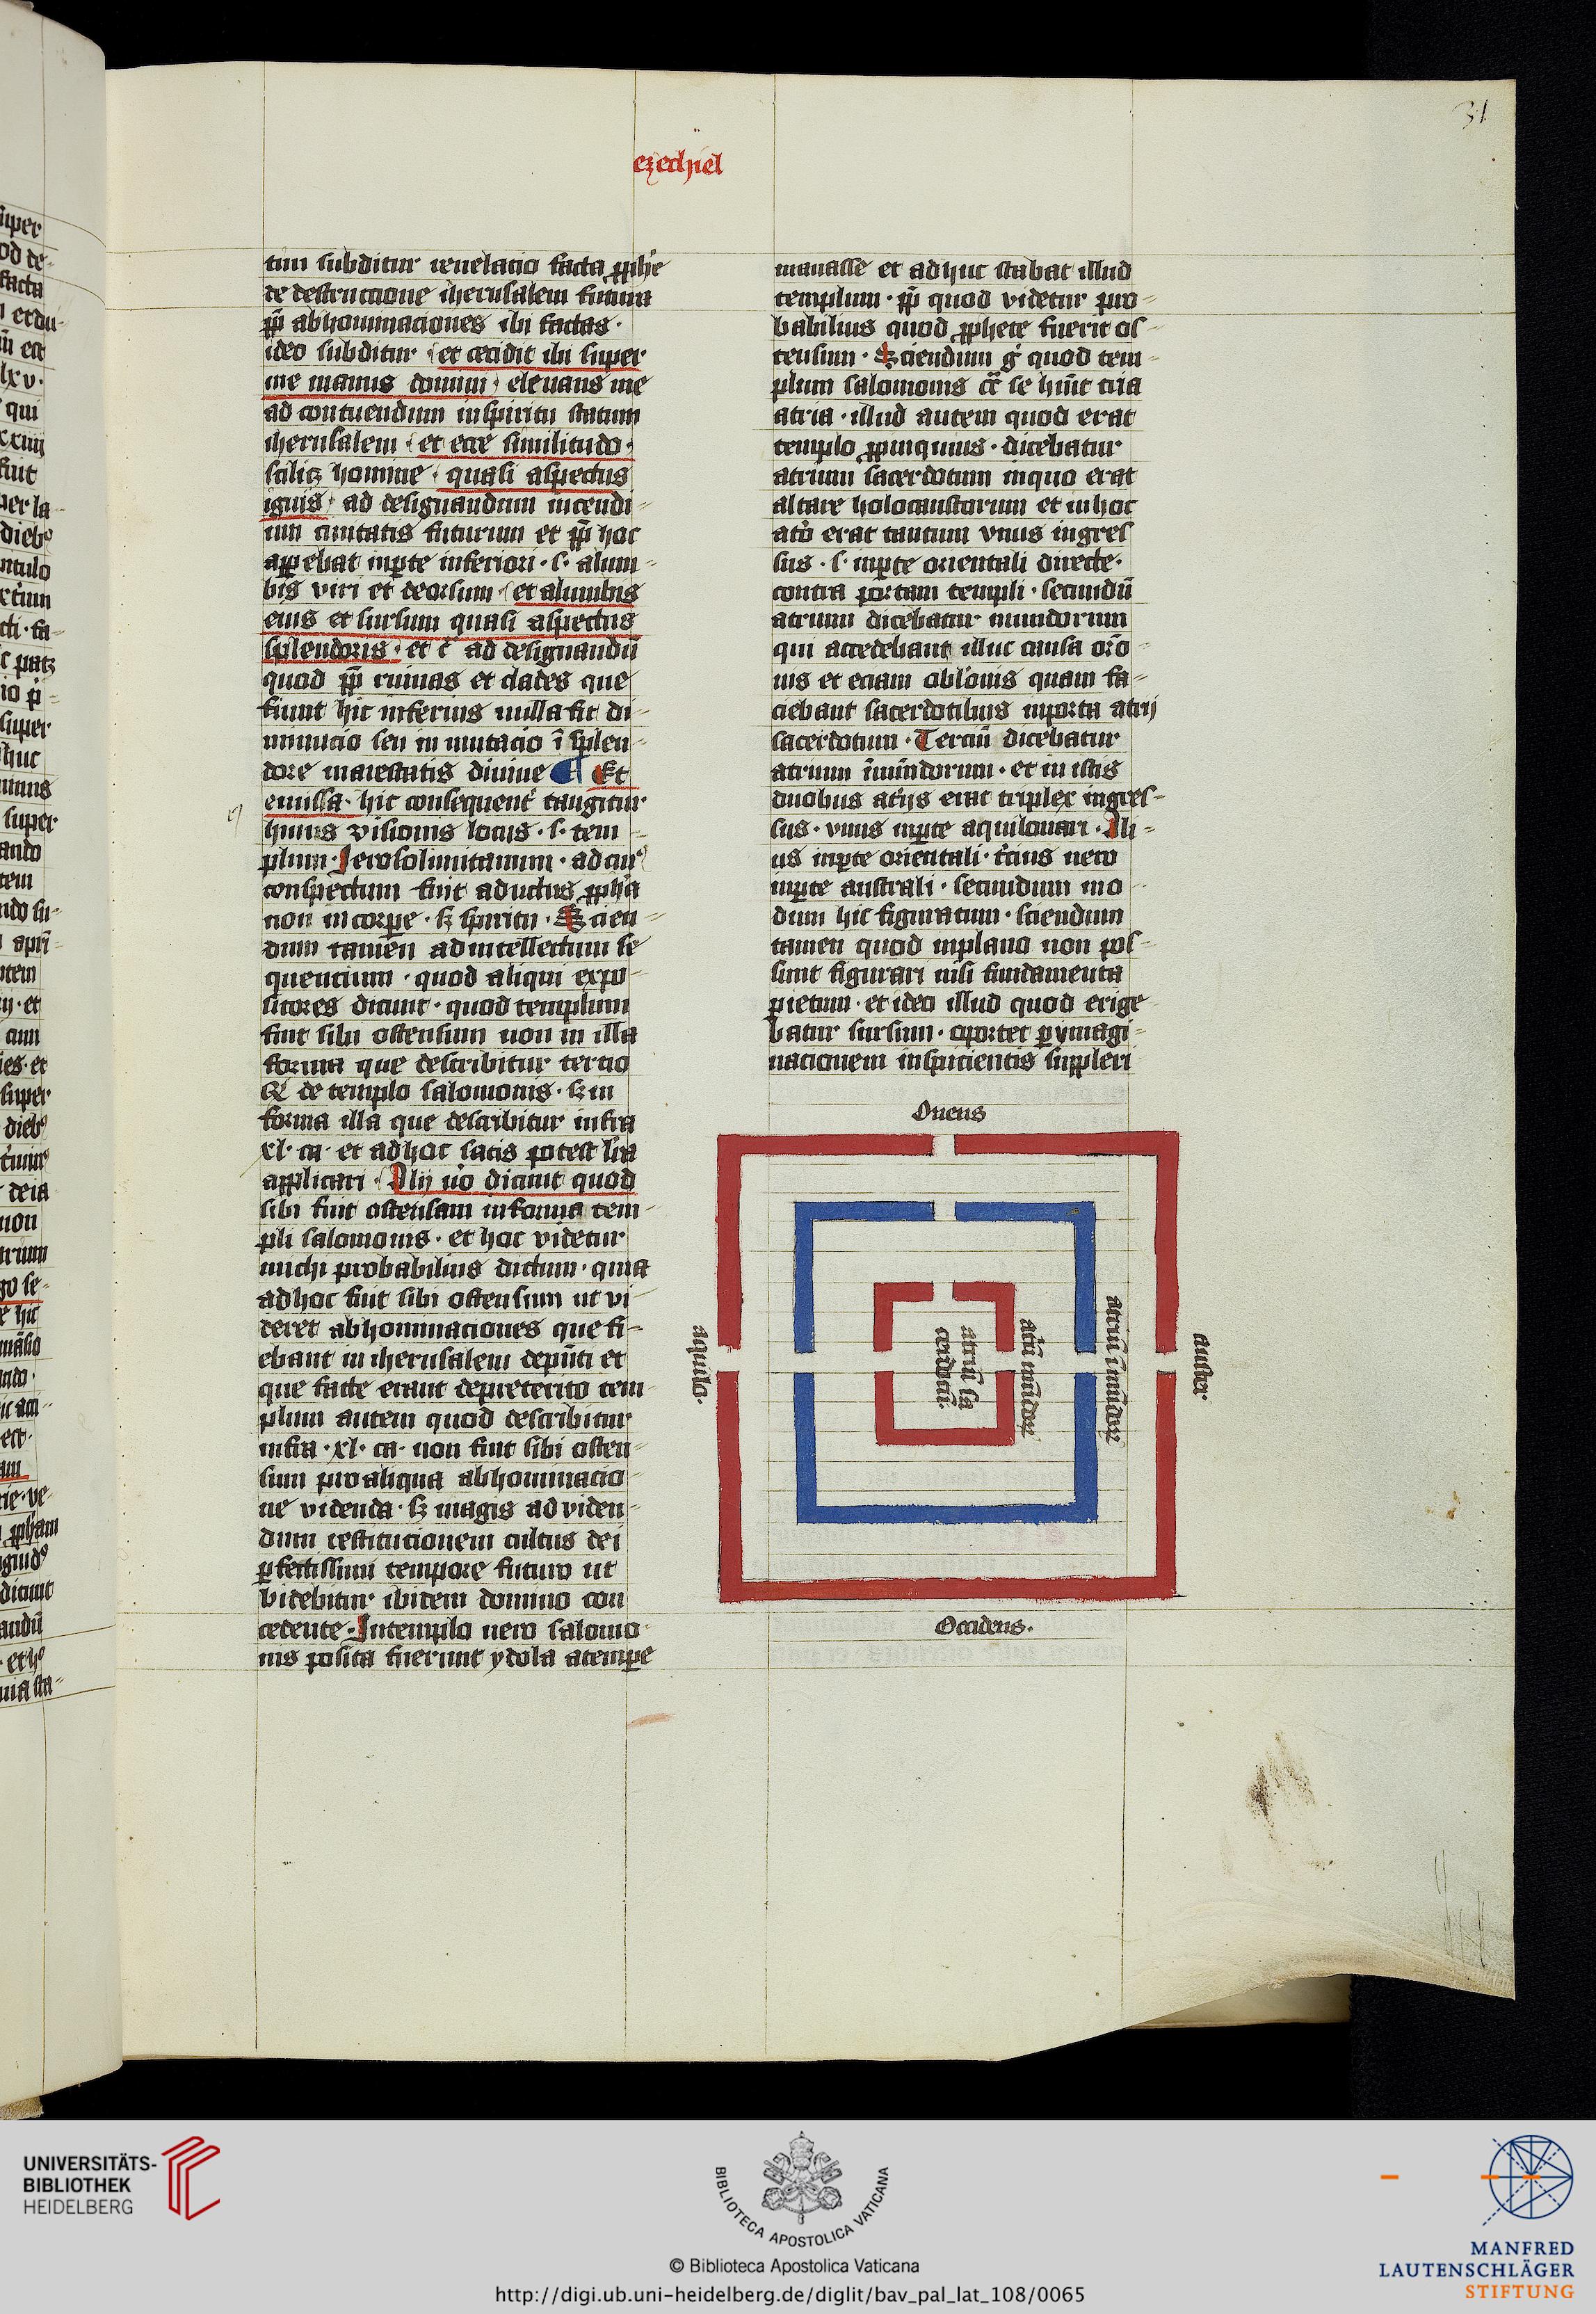 31
ezechiel
tim subditur reuelacio facta ꝓphe
de destructione iherusalem futura
ꝓp abhominaciones ibi factas ·
ideo subditur · et cecidit ibi super
me manus domini · eleuans me
ad contuendum in spiritu statum
iherusalem · et ecce similitudo ·
scilicꝫ homine · quasi aspectus
ignis · ad designandum incendi-
um ciuitatis futurum et ꝓp hoc
apꝑebat inꝑte inferiori · s · alum-
bis viri et deorsum · et alumbis
eius et sursum quasi aspectus
splendoris · et c̄ ad designandū
quod ꝓp ruinas et clades que
fiunt hic inferius nulla fit di-
minucio seu in mutacio ī splen-
dore maiestatis diuine ¶ Et
emissa · hic consequent̄ tangitur
huius visionis locus · s · tem-
plum · Jerosolimitanum · ad cuiꝰ
conspectum fuit aductus ꝓpha
non in corꝑe · sꝫ spiritu · Scien-
dum tamen ad intellectum se
quencium · quod aliqui expo-
sitores dicunt · quod templum
fuit sibi ostensum non in illa
forma que describitur tercio
Rͨ de templo salomonis · sꝫ in
forma illa que describitur infra
xl · ca · et adhoc satis potest lr̄a
applicari · Alij uo dicunt quod
sibi fuit ostensam in forma tem-
pli salomonis · et hoc videtur
michi probabilius dictum · quia
ad hoc fuit sibi ostensum ut vi-
deret abhominaciones que fi-
ebant in iherusalem depn̄ti et
que facte erant depreterito tem-
plum autem quod describitur
infra · xl · ca · non fuit sibi osten-
sum pro aliqua abhominacio-
ne videnda · sꝫ magis ad viden-
dum restitucionem cultus dei
ꝑfectissimi tempore futuro ut
videbitur ibidem domino con
cedente · Jntemplo uero salomo-
nis posita fuerunt ydola atempe
manasse et adhuc stabat illud
templum · ꝓp quod videtur pro-
babilius quod ꝓphete fuerit os-
tensum · Sciendum gͦ quod tem-
plum salomonis cͣ se hn̄t tria
atria · illud autem quod erat
templo ꝓpinquius · dicebatur
atrium sacerdotum inquo erat
altare holocaustorum et inhoc
atͦo erat tantum vnus ingres
sus · s · inꝑte orientali directe ·
contra portam templi · secundū
atrium dicebatur mundorum
qui accedebant illuc causa orō-
nis et eciam oblonis quam fa-
ciebant sacerdotibus inporta atrij
sacerdotum · Terciū dicebatur
atrium īmūdorum · et in istis
duobus atrijs erat triplex ingres-
sus · vnus inꝑte aquilonari · Ali-
us inꝑte orientali · tcius uero
inꝑte australi · secundum mo-
dum hic figuratum · sciendum
tamen quod inplano non pos-
sunt figurari nisi fundamenta
pietum · et ideo illud quod erige-
batur sursum · oportet ꝑ ymagi-
nacionem inspicientis suppleri
Oriens
aquilo ·
atriū sa
cerdotū ·
atū mūdoꝝ
atriū īmūdoꝝ
auster
Occidens ·
UNIVERSITÄTS-
BIBLIOTHEK
HEIDELBERG
BIBLIOTECA APOSTOLICA VATICANA
© Biblioteca Apostolica Vaticana
http://digi.ub.uni-heidelberg.de/diglit/bav_pal_lat_108/0065
MANFRED
LAUTENSCHLÄGER
STIFTUNG